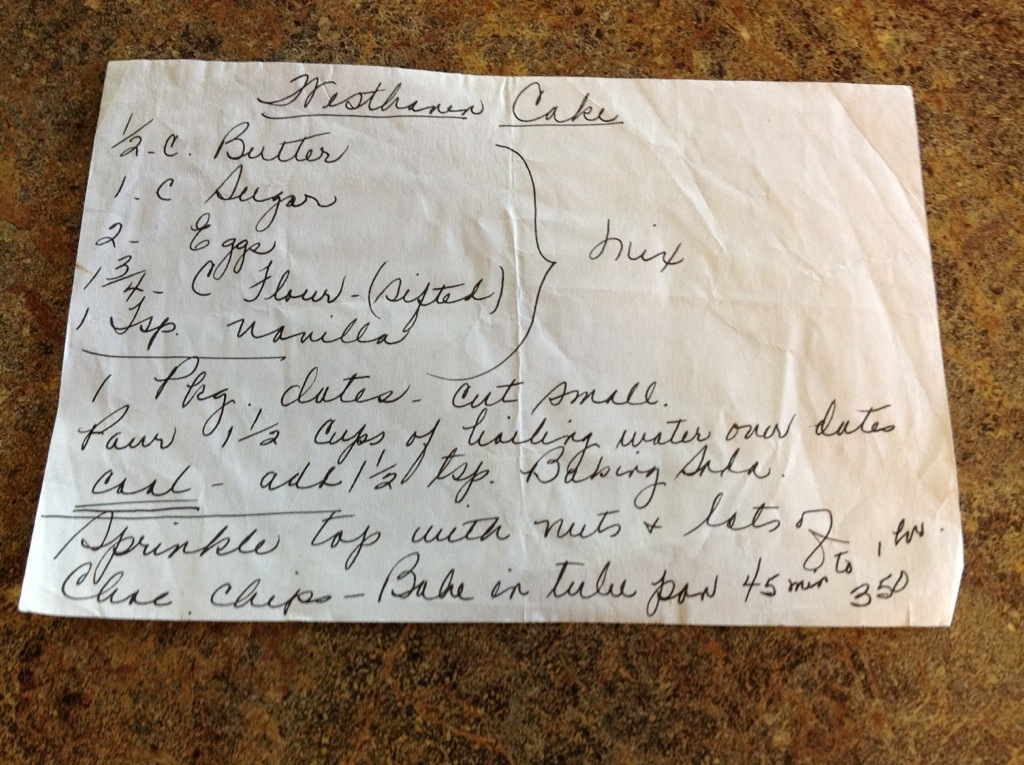 Westhaven Cake
1/2 - C. Butter
1. C Sugar
2 - Eggs
1 3/4 - C Flour - (sifted)
1 Tsp. vanilla
Mix
1 Pkg. dates - cut small.
Pour 1 1/2 cups of boiling water over dates
cool - add 1 1/2 tsp. Baking Soda.
Sprinkle top with nuts + lots of
Choc. chips - Bake in tube pan 45 min to 1 hr.
350